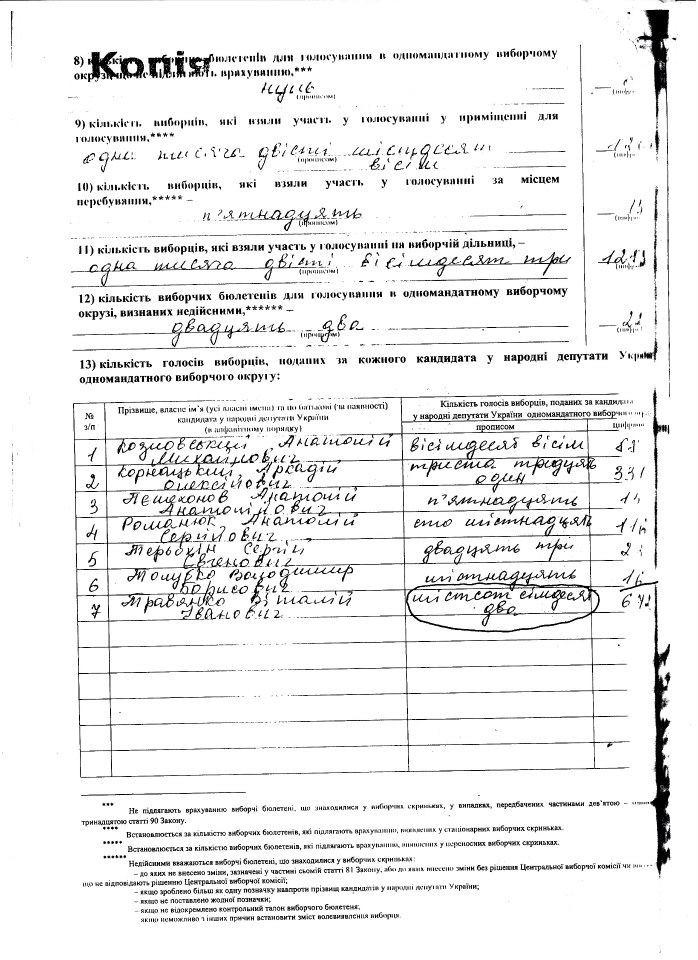 Копія
8) кількість виборчих бюлетенів для голосування в одномандатному виборчому
окрузі, що не підлягають врахуванню,***
нуль
(прописом)
9) кількість виборців, які взяли участь у голосуванні у приміщенні для
голосування,****
одна тисяча двісті шістдесят
вісім
(прописом)
10) кількість виборців, які взяли участь у голосуванні за місцем
перебування,***** –
п'ятнадцять
(прописом)
11) кількість виборців, які взяли участь у голосуванні на виборчій дільниці, –
одна тисяча двісті вісімдесят три 1283
(прописом)
12) кількість виборчих бюлетенів для голосування в одномандатному виборчому
окрузі, визнаних недійсними,****** –
двадцять два 22
(прописом)
13) кількість голосів виборців, поданих за кожного кандидата у народні депутати
одномандатного виборчого округу:
№ з/п
Прізвище, власне ім'я (усі власні імена) та по батькові (за наявності)
кандидата у народні депутати України
(в алфавітному порядку)
Кількість голосів виборців, поданих за кандидата
у народні депутати України одномандатного
прописом цифрами
1 Козловський Анатолій вісімдесят вісім 88
Михайлович
2 Корнацький Аркадій триста тридцять 331
Олексійович один
3 Анатолій п'ятнадцять 15
Анатолійович
4 Романюк Анатолій сто шістнадцять 116
Сергійович
5 Терьохін Сергій двадцять три 23
Євгенович
6 Володимир шістнадцять 16
Борисович
7 Травянко Віталій шістсот сімдесят 672
Іванович два
*** Не підлягають врахуванню виборчі бюлетені, що знаходилися у виборчих скриньках, у випадках, передбачених частинами дев'ятою –
тринадцятою статті 90 Закону.
**** Встановлюється за кількістю виборчих бюлетенів, які підлягають врахуванню, виявлених у стаціонарних виборчих скриньках.
***** Встановлюється за кількістю виборчих бюлетенів, які підлягають врахуванню, виявлених у переносних виборчих скриньках.
****** Недійсними вважаються виборчі бюлетені, що знаходилися у виборчих скриньках:
– до яких не внесено зміни, зазначені у частині сьомій статті 81 Закону, або до яких внесено зміни без рішення Центральної виборчої комісії чи
що не відповідають рішенню Центральної виборчої комісії;
– якщо зроблено більш як одну позначку навпроти прізвищ кандидатів у народні депутати України;
– якщо не поставлено жодної позначки;
– якщо не відокремлено контрольний талон виборчого бюлетеня;
якщо неможливо з інших причин встановити зміст волевиявлення виборця.